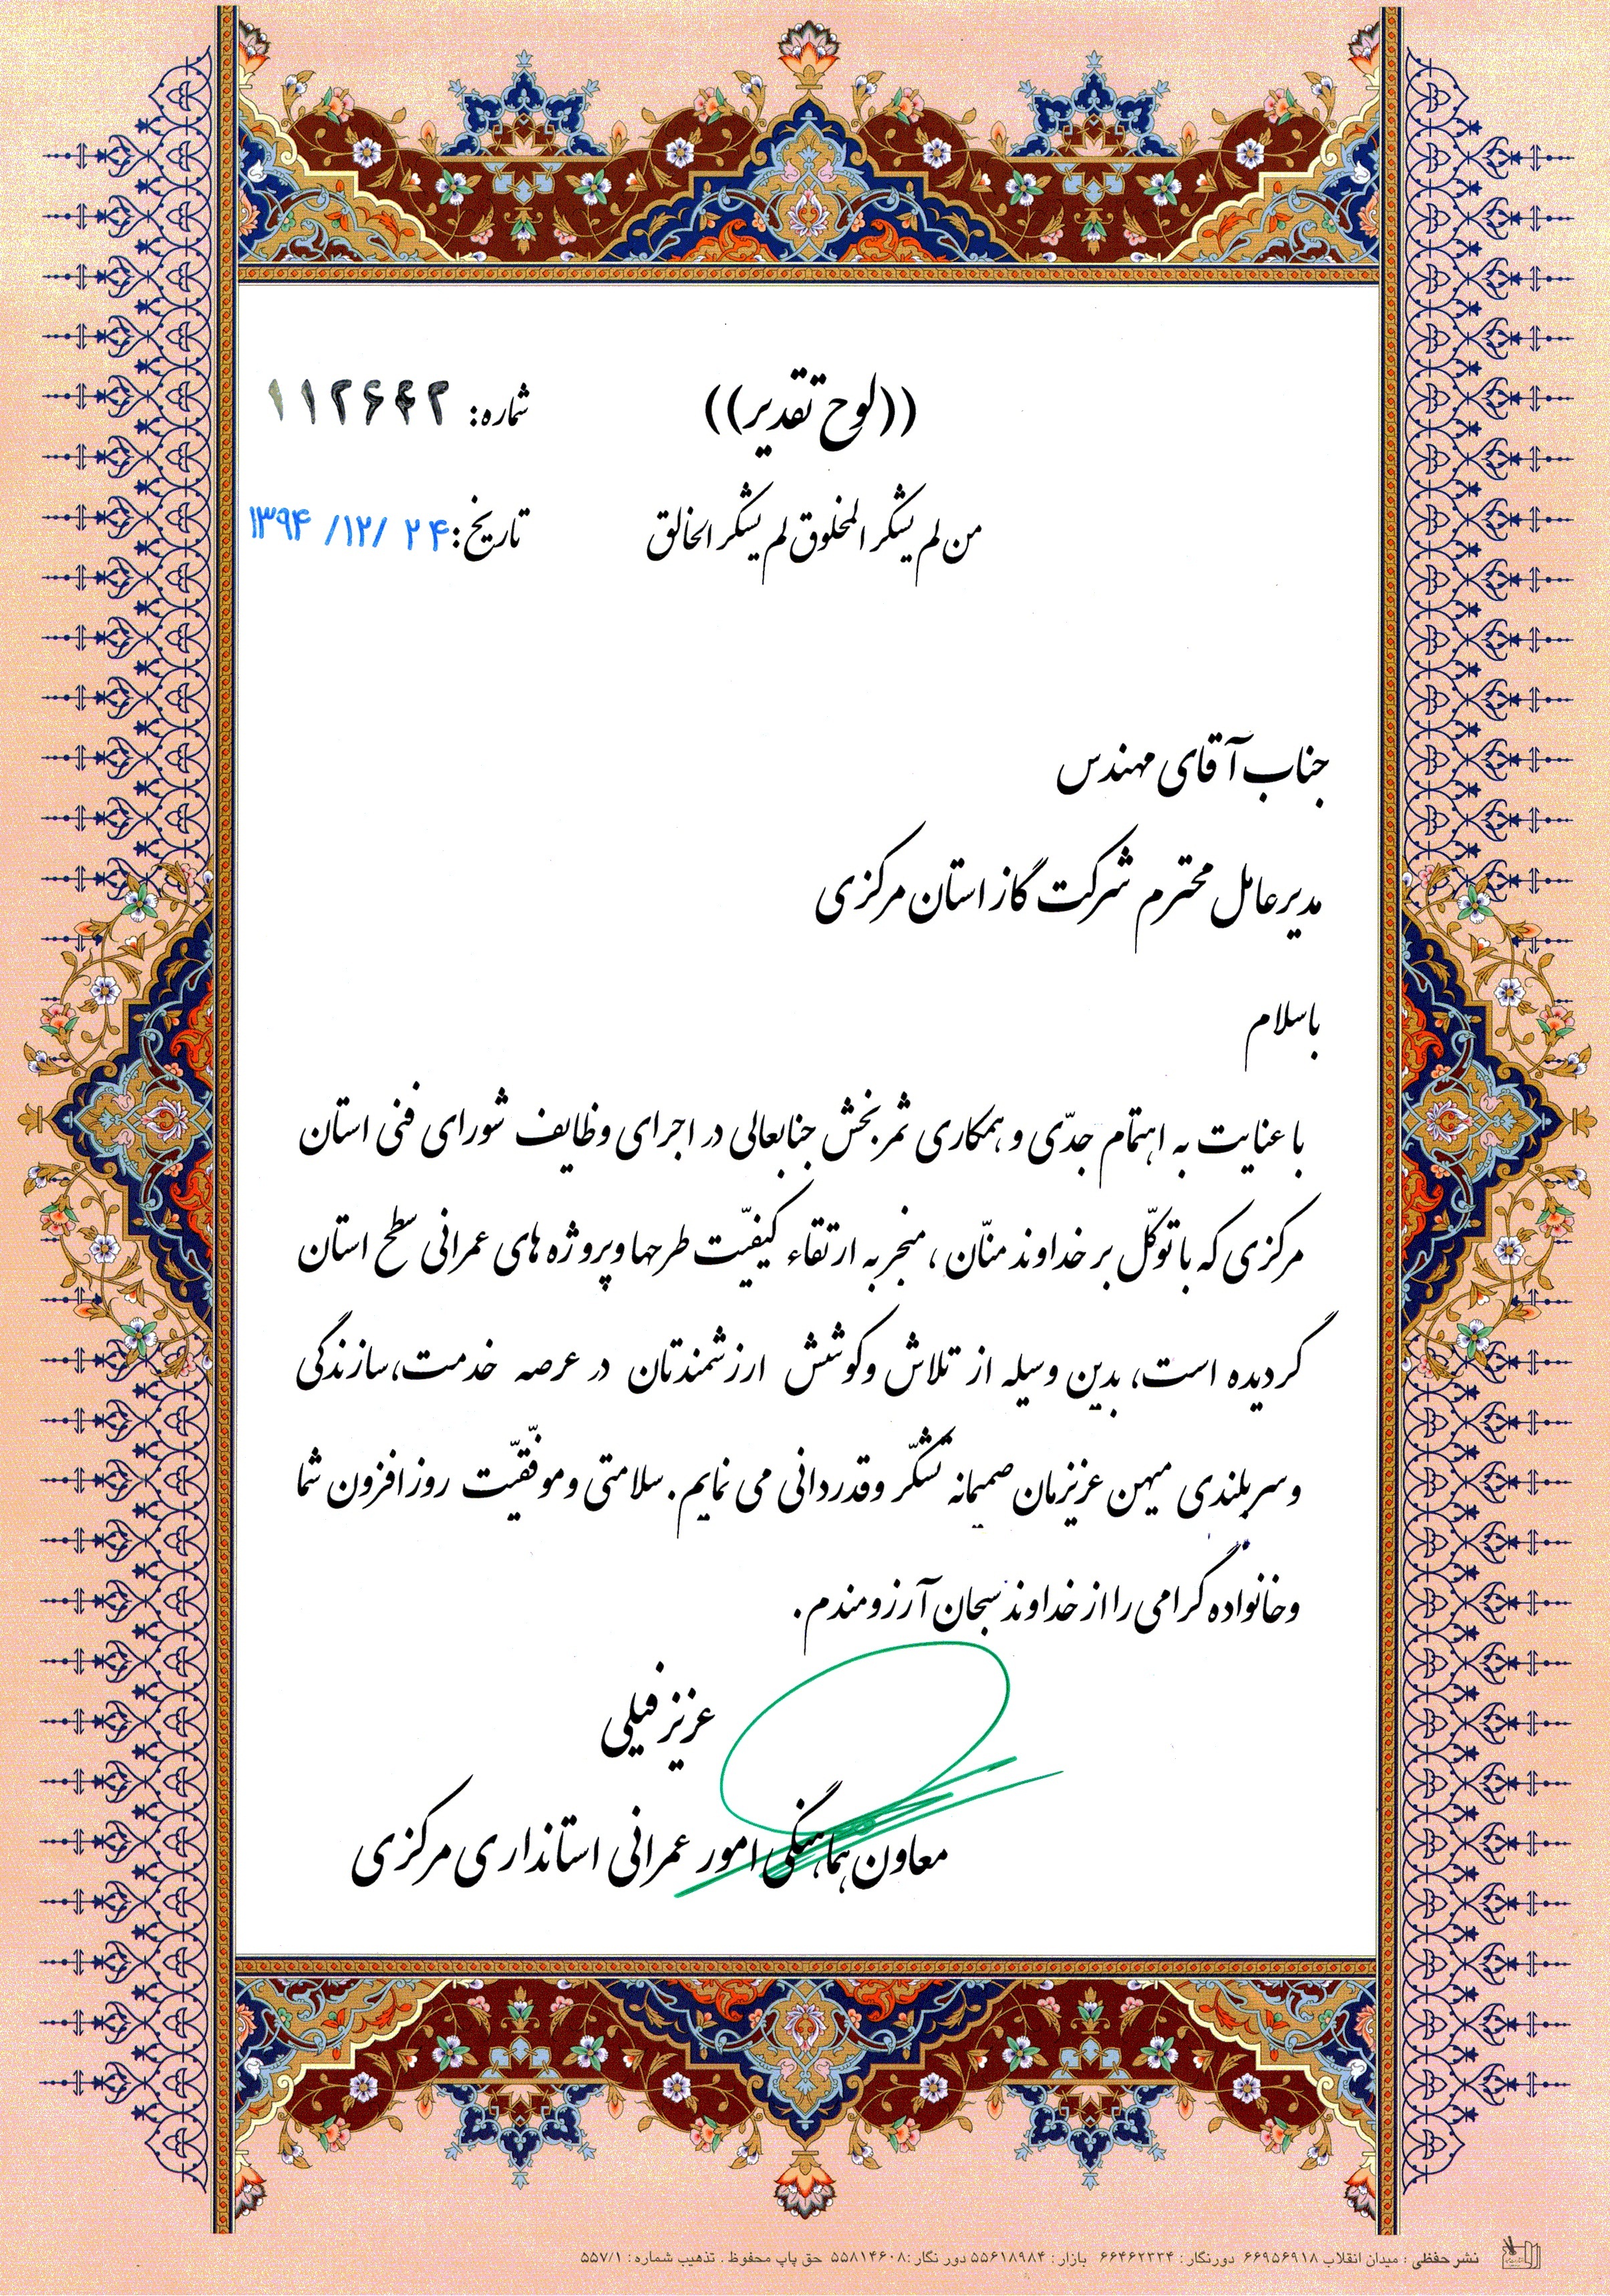 ((لوح تقدیر))
شماره: ۱۱۲۶۴۲
من لم یشکر المخلوق لم یشکر الخالق
تاریخ: ۲۴ /۱۲/ ۱۳۹۴
جناب آقای مهندس
مدیرعامل محترم شرکت گاز استان مرکزی
باسلام
با عنایت به اهتمام جدّی و همکاری ثمربخش جنابعالی در اجرای وظایف شورای فنی استان
مرکزی که با توکّل بر خداوند منّان ، منجر به ارتقاء کیفیّت طرحها و پروژه های عمرانی سطح استان
گردیده است، بدین وسیله از تلاش و کوشش ارزشمندتان در عرصه خدمت، سازندگی
و سربلندی میهن عزیزمان صمیمانه تشکّر و قدردانی می نمایم. سلامتی و موفّقیّت روز افزون شما
و خانواده گرامی را از خداوند سبحان آرزومندم.
عزیز فیلی
معاون هماهنگی امور عمرانی استانداری مرکزی
نشر حفظی : میدان انقلاب ۶۶۹۵۶۹۱۸ دورنگار : ۶۶۴۶۲۳۳۴ بازار : ۵۵۶۱۸۹۸۴ دور نگار :۵۵۸۱۴۶۰۸ حق چاپ محفوظ . تذهیب شماره : ۵۵۷/۱